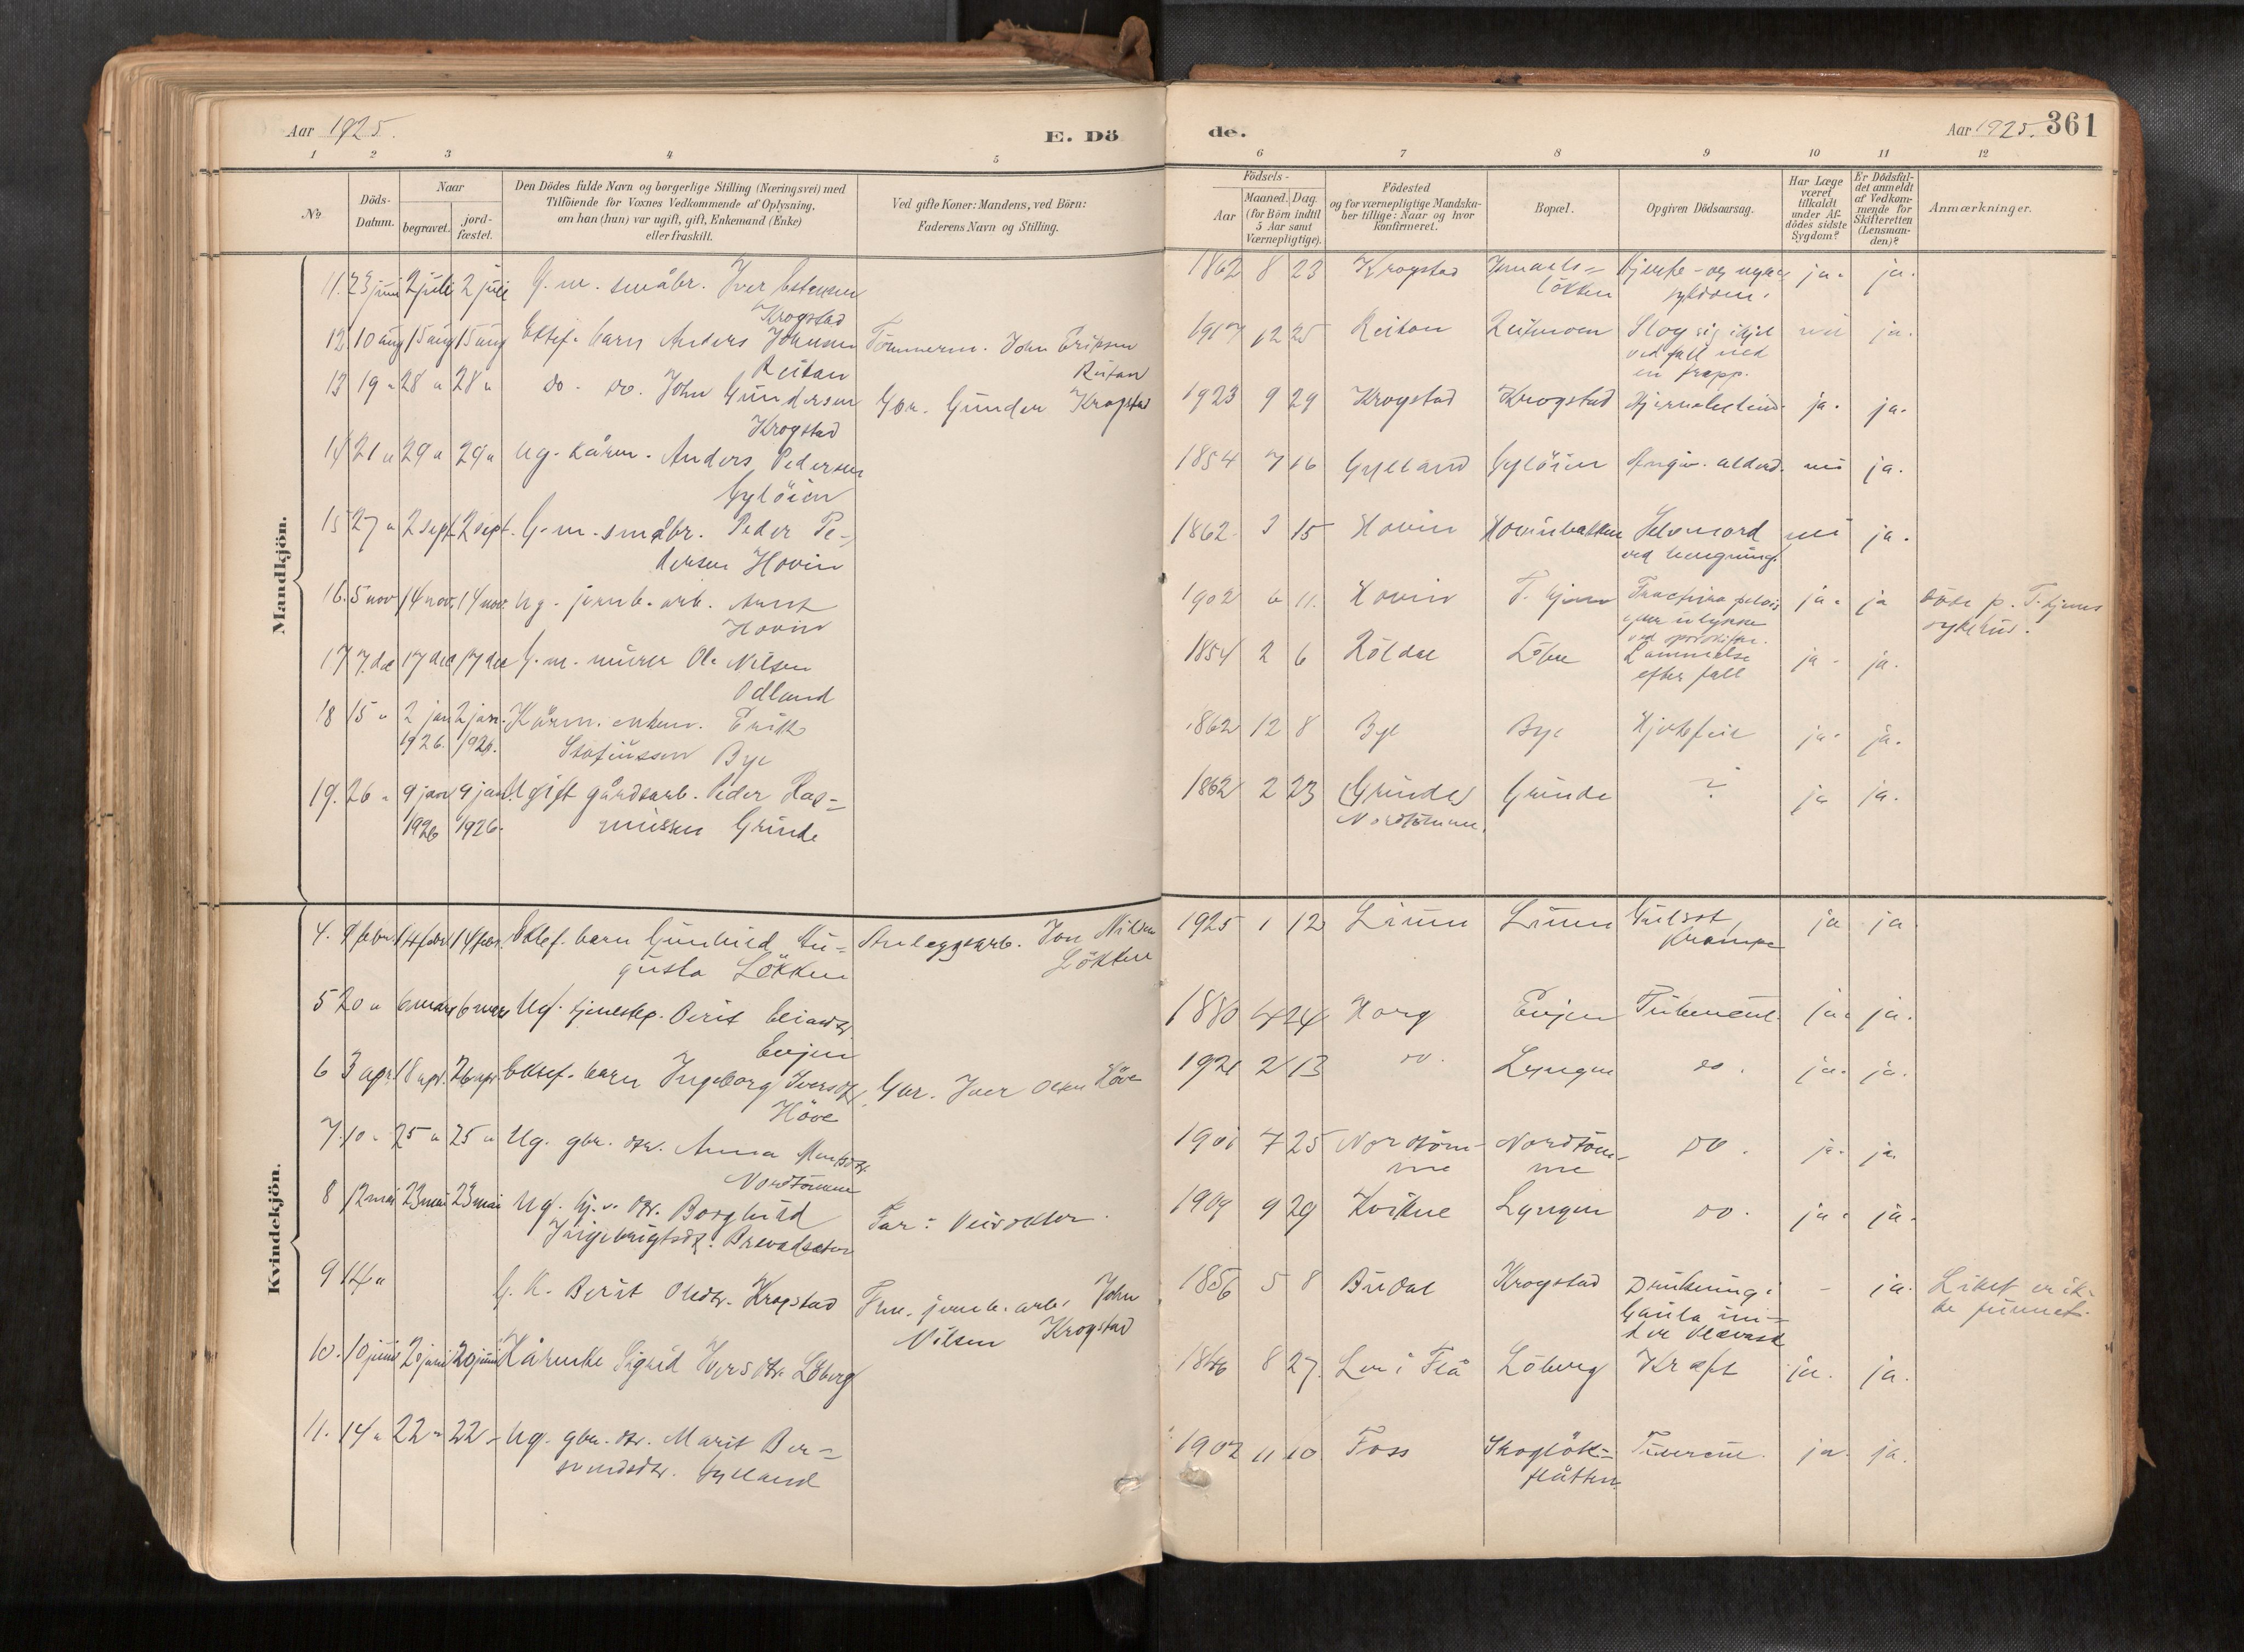 Aar 1925.
E. Dö
de.
Aar 1925. 361
1 2 3 4 5 6 7 8 9 10 11 12
No.
Döds-
Datum.
Naar
begravet.
jord-
fæstet.
Den Dödes fulde Navn og borgerlige Stilling (Næringsvei) med
Tilföiende for Voxnes Vedkommende af Oplysning,
om han (hun) var ugift, gift, Enkemand (Enke)
eller fraskilt.
Ved gifte Koner: Mandens, ved Börn:
Faderens Navn og Stilling.
Födsels-
Aar
Maaned. Dag.
(for Börn indtil
5 Aar samt
Værnepligtige).
Födested
og for værnepligtige Mandska-
ber tillige: Naar og hvor
konfirmeret.
Bopæl.
Opgiven Dödsaarsag.
Har Læge
været
tilkaldt
under Af-
dödes sidste
Sygdom?
Er Dödsfal-
det anmeldt
af Vedkom-
mende for
Skifteretten
(Lensman-
den)?
Anmærkninger.
Mandkjön.
11. 23 juni 2 juli 2 juli G. m. småbr. Iver Estensen
Krogstad
1862 8 23 Krogstad
løkken
ja. ja.
12 10 aug 15 aug 15 aug Ektef. barn Anders Johnsen
Reitan
Tømmerm. John Eriksen
Reitan
1917 12 25 Reitan Reitmoen Slog sig ihjel
ved fall ned
en trapp.
nei ja.
13 19 " 28 " 28 " do. do. John Gundersen
Krogstad
Gbr. Gunder Krogstad
1923 9 29 Krogstad Krogstad ja. ja.
14 21 " 29 " 29 " Ug. kårm. Anders Pedersen
Gyløien
1854 7 16 Gylland Gyløien nei ja.
15 27 " 2 sept 2 sept. G. m. småbr. Peder Pe-
dersen Hovin
1862 3 15 Hovin Hovinbakken Selvmord
ved hengning.
nei ja.
16. 5 nov 14 nov. 14 nov. Ug. jernb. arb.
Hovin
1902 6 11. Hovin T. hjem Fractura pelvis
efter ulykke
ja. ja døde p. T. hjems
sykehus.
17 7. dec 17 dec 17 dec G. m. murer Ole Nilsen
Odland
1854 2 6 Röldal Lammelse
efter fall
ja. ja.
18 15 " 2 jan 2 jan. Kårm. enkem. Erik
1926. 1926. Bye
1862 12 8 Bye Bye Hjertefeil ja. ja.
19. 26 " 9 jan 9 jan. Ugift gårdsarb. Peder Ras-
1926 1926. mussen Grinde
1862 2 23 Grinde
Grinde ? ja ja.
Kvindekjön.
4. 9 febr 14 febr 14 febr. Ektef. barn Gunhild Au-
gusta Løkken
Anleggsarb. Jon Nilsen
Løkken
1925 1 12 Gulsot,
Krampe
ja ja
5 20 " 6 mars 6 mars Ug. tjenestep. Berit
Evjen
1880 4 24 Horg Evjen Tubercul.. ja. ja.
6 3 apr. 18 apr. 26 apr Ektef. barn Ingeborg Iversdtr.
Höve
Gbr. Iver Olsen Höve
1921 2 13 do. Lyngen do. ja. ja.
7. 10 " 25 " 25 " Ug. gbr. dtr. Anna
Nordtømme
1901 7 25 Nordtøm-
me
Nordtøm-
me
do. ja. ja.
8 12 mai 23 mai 23 mai Ug. dtr. Borghild
Ingebrigtsdtr.
Far: Veivokter
1909 9 29 Kvikne Lyngen do. ja. ja.
9 14 "
G. K. Berit Olsdtr. Krogstad
Fhv. jernb. arb. John
Nilsen Krogstad
1856 5 8 Budal Krogstad Drukning i
Gaula un-
- ja. Liket er ik-
ke funnet.
10. 10 juni 20 juni 20 juni Kårenke Sigrid Iversdtr. Løberg
1846 8 27. Ler i Flå Løberg Kræft ja. ja.
11. 14 " 22 " 22 " Ug. gbr. dtr. Marit Ber-
svendsdtr. Gylland
1902 11 10 Foss Skogløk-
flåtten
ja. ja.